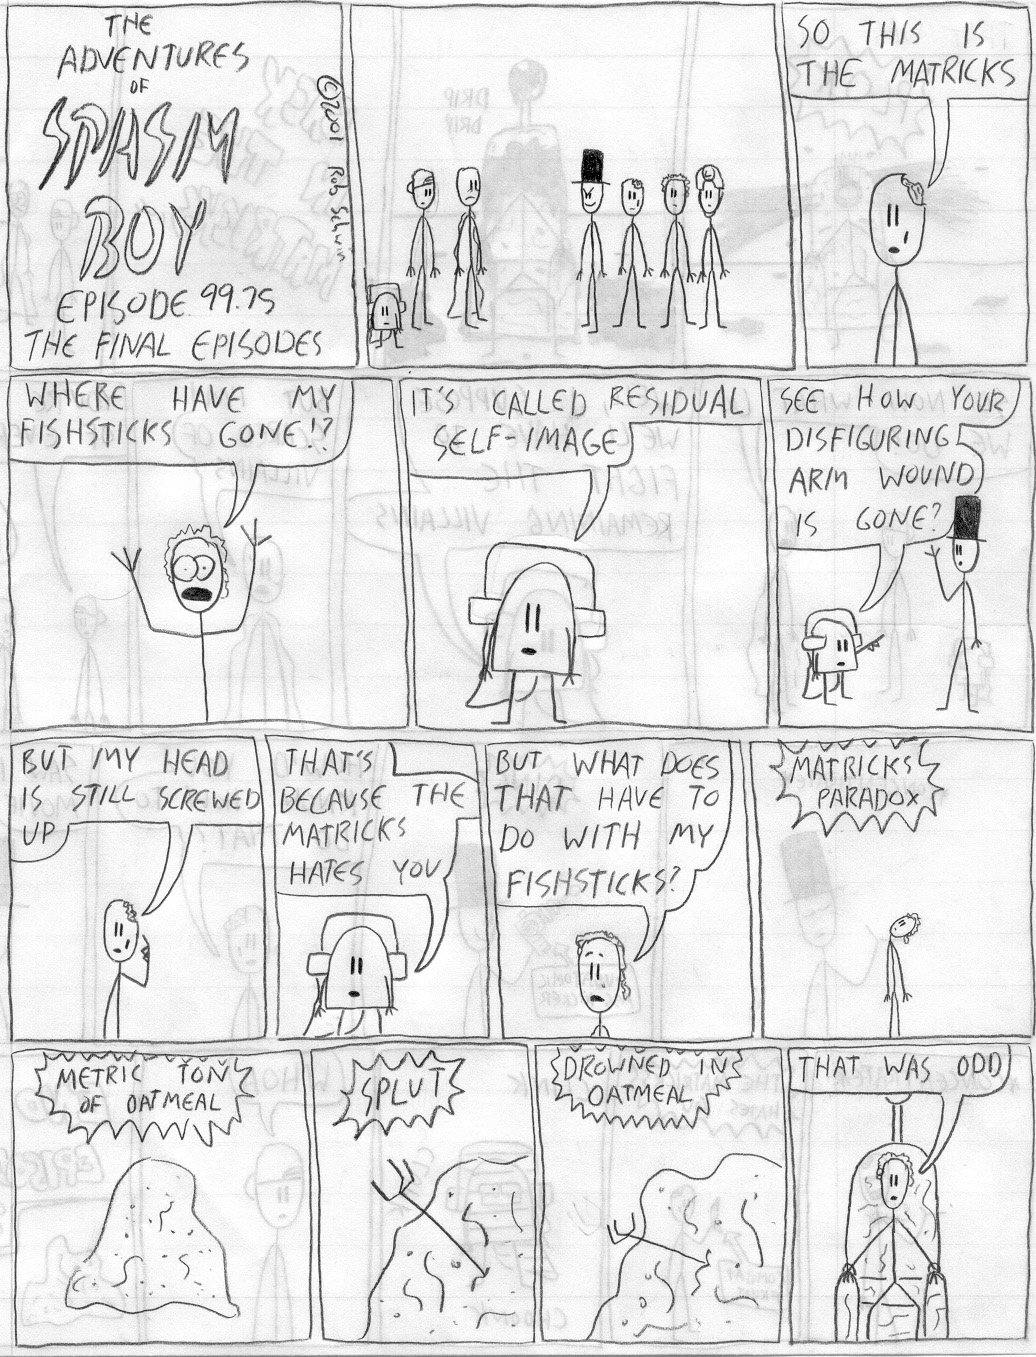 THE
ADVENTURES
OF
SPASM
BOY
EPISODE 99.75
THE FINAL EPISODES
©2001 Rob Schwin
SO THIS IS
THE MATRICKS
WHERE HAVE MY
FISHSTICKS GONE!?
IT'S CALLED RESIDUAL
SELF-IMAGE
SEE HOW YOUR
DISFIGURING
ARM WOUND
IS GONE?
BUT MY HEAD
IS STILL SCREWED
UP
THAT'S
BECAUSE THE
MATRICKS
HATES YOU
BUT WHAT DOES
THAT HAVE TO
DO WITH MY
FISHSTICKS?
MATRICKS
PARADOX
METRIC TON
OF OATMEAL
SPLUT
DROWNED IN
OATMEAL
THAT WAS ODD